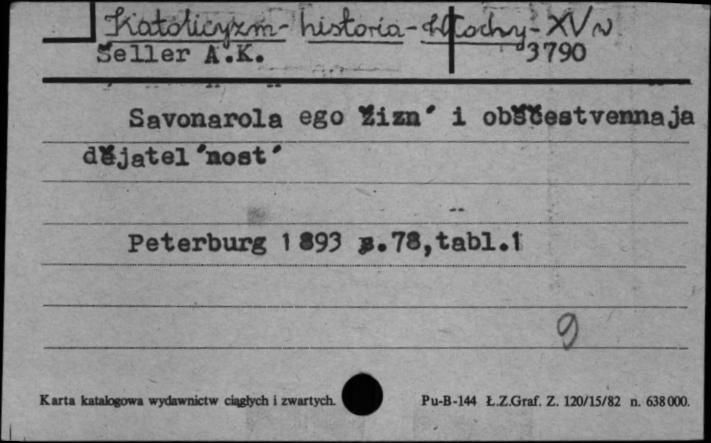 Katolicyzm - historia - Włochy - XV w
Šeller A.K. 3790
Savonarola ego Žizn' i obščestvennaja
dějatel'nost'
Peterburg 1893 s.78,tabl.1
9
Karta katalogowa wydawnictw ciągłych i zwartych. Pu-B-144 Ł.Z.Graf. Z. 120/15/82 n. 638000.